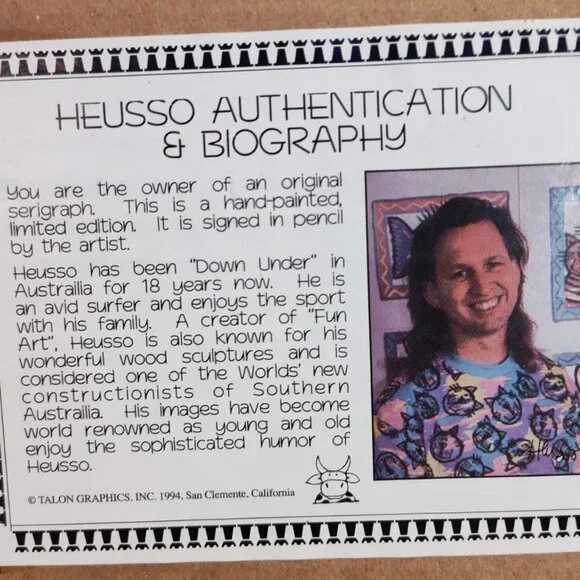 HEUSSO AUTHENTICATION
& BIOGRAPHY
You are the owner of an original
serigraph. This is a hand-painted,
limited edition. It is signed in pencil
by the artist.
Heusso has been "Down Under" in
Austrailia for 18 years now. He is
an avid surfer and enjoys the sport
with his family. A creator of "Fun
Art", Heusso is also known for his
wonderful wood sculptures and is
considered one of the Worlds' new
constructionists of Southern
Austrailia. His images have become
world renowned as young and old
enjoy the sophisticated humor of
Heusso.
© TALON GRAPHICS, INC. 1994, San Clemente, California